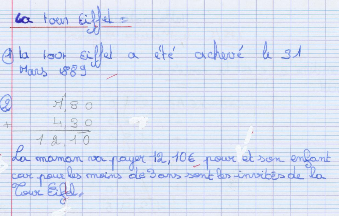 La tour Eiffel =
① La tour Eiffel a été achevé le 31
Mars 1889
②
7,80
+ 4 30
12,10
La maman va payer 12,10€ pour et son enfant
car pour les moins de 3 ans sont les invités de la
Tour Eiffel.